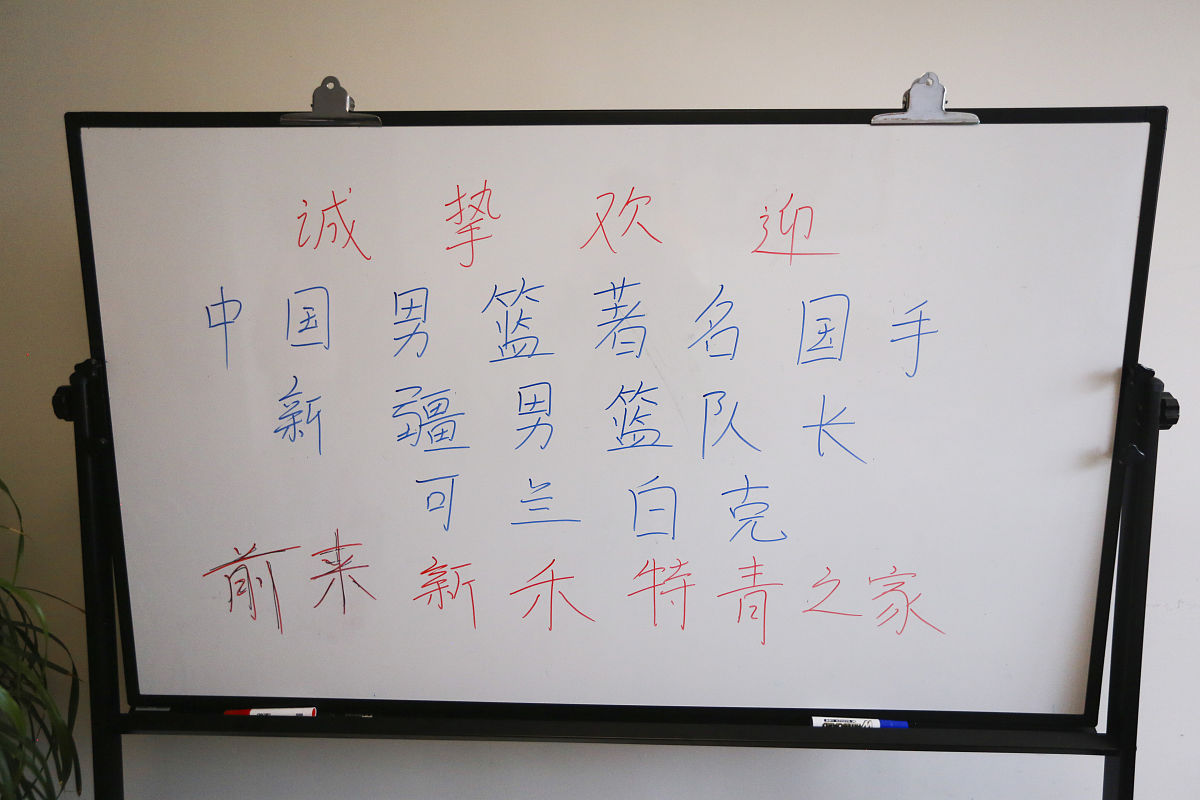 诚挚欢迎
中国男篮著名国手
新疆男篮队长
可兰白克
前来新禾特青之家